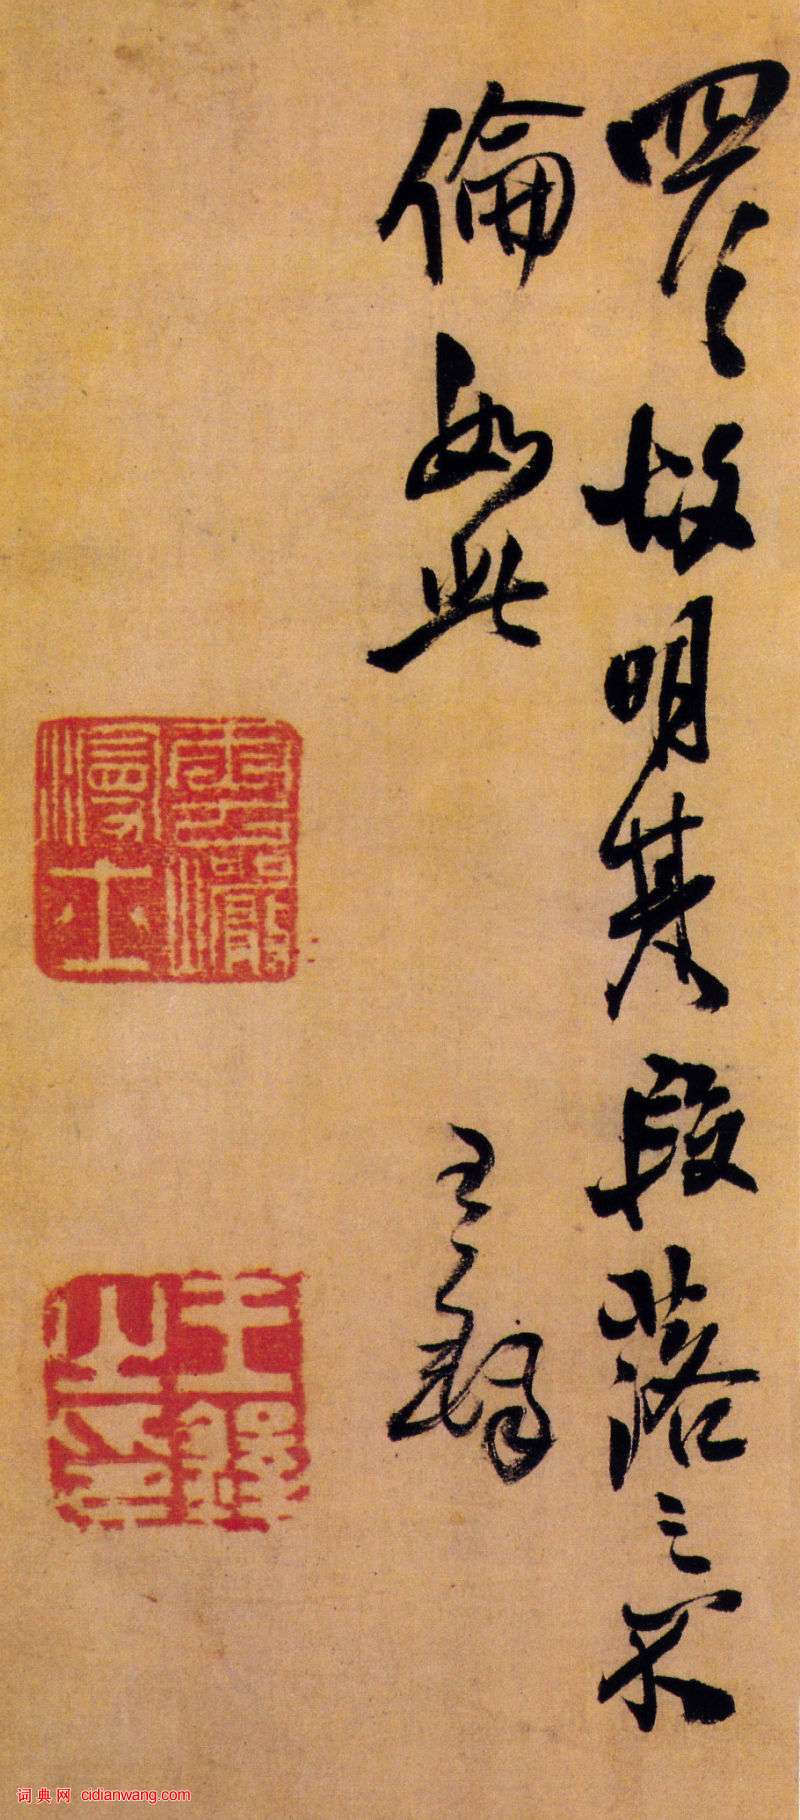 故明其段落之不
倫如此
王鐸
王鐸之印
词典网 cidianwang.com